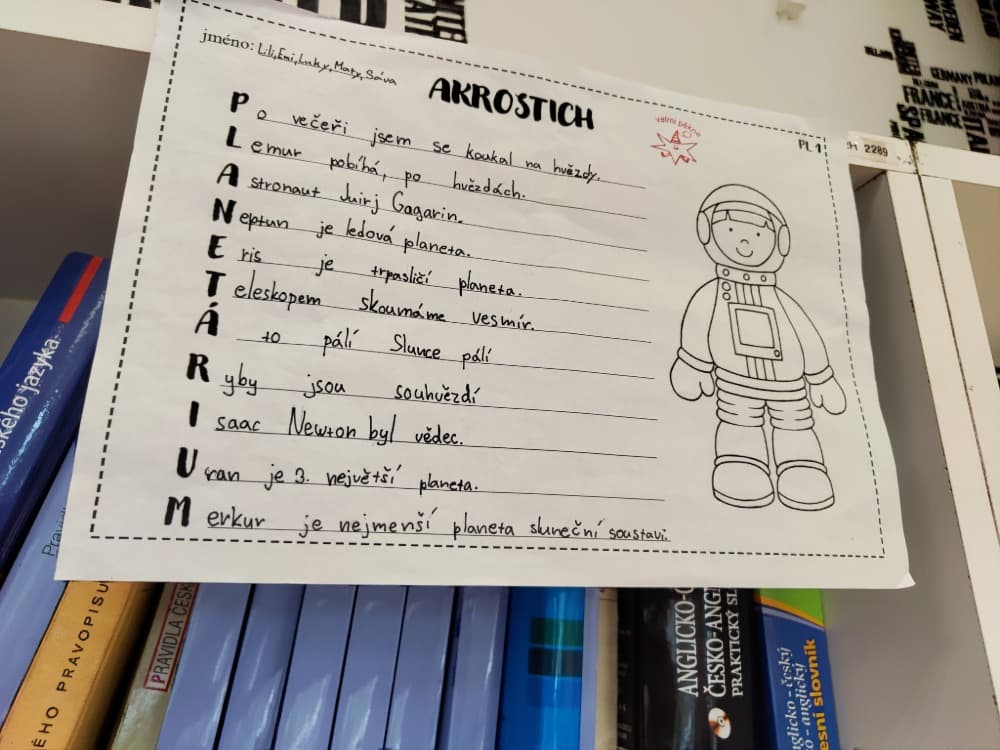 jméno: Lili, Emi, Luky, Maty, Sáva
AKROSTICH
velmi pěkné
PL 1
2289
Po večeři jsem se koukal na hvězdy.
Lemur pobíhá, po hvězdách.
Astronaut Juirj Gagarin.
Neptun je ledová planeta.
Eris je trpasličí planeta.
Teleskopem skoumáme vesmír.
Á to pálí Slunce pálí
Ryby jsou souhvězdí
Isaac Newton byl vědec.
Uran je 3. největší planeta.
Merkur je nejmenší planeta sluneční soustavi.
ského jazyka
Pravidl
ÉHO PRAVOPISU
PRAVIDLA ČESK
ANGLICKO-
ČESKO-ANG
PRAKTICKÝ SL
anglicko-český
o-anglický
esní slovník
GERMANY
FRANCE
FRANCE